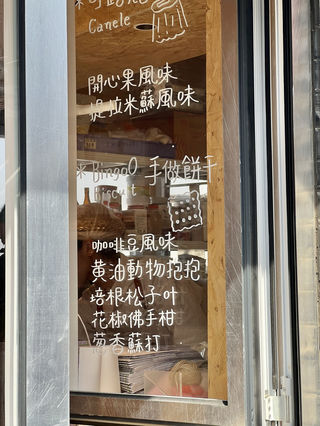 Canele
開心果風味
提拉米蘇風味
米BingoO 手做餅干
Biscuit
咖啡豆風味
黃油動物抱抱
培根松子叶
花椒佛手柑
葱香蘇打